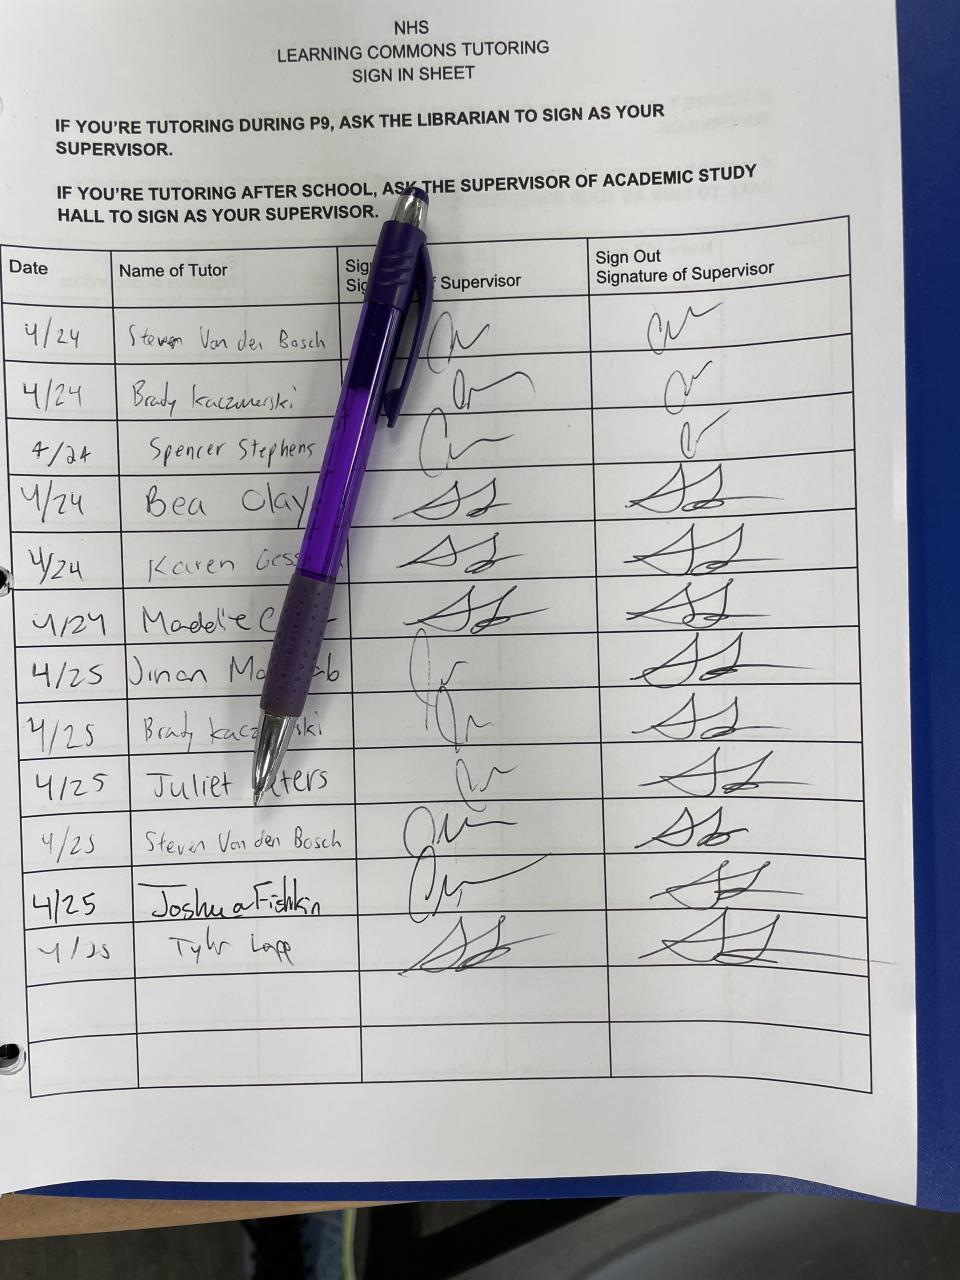 NHS
LEARNING COMMONS TUTORING
SIGN IN SHEET
IF YOU'RE TUTORING DURING P9, ASK THE LIBRARIAN TO SIGN AS YOUR
SUPERVISOR.
IF YOU'RE TUTORING AFTER SCHOOL, ASK THE SUPERVISOR OF ACADEMIC STUDY
HALL TO SIGN AS YOUR SUPERVISOR.
Date Name of Tutor Supervisor Sign Out
Signature of Supervisor
4/24 Steven Van der Bosch
4/24 Brady Kaczmerski
4/24 Spencer Stephens
4/24 Bea Clay
4/24 Karen
4/24 Maddie
4/25 Jinan
4/25 Brady
4/25 Juliet
4/25 Steven Van den Bosch
4/25 Joshua Fishkin
4/25 Tyler Lapp